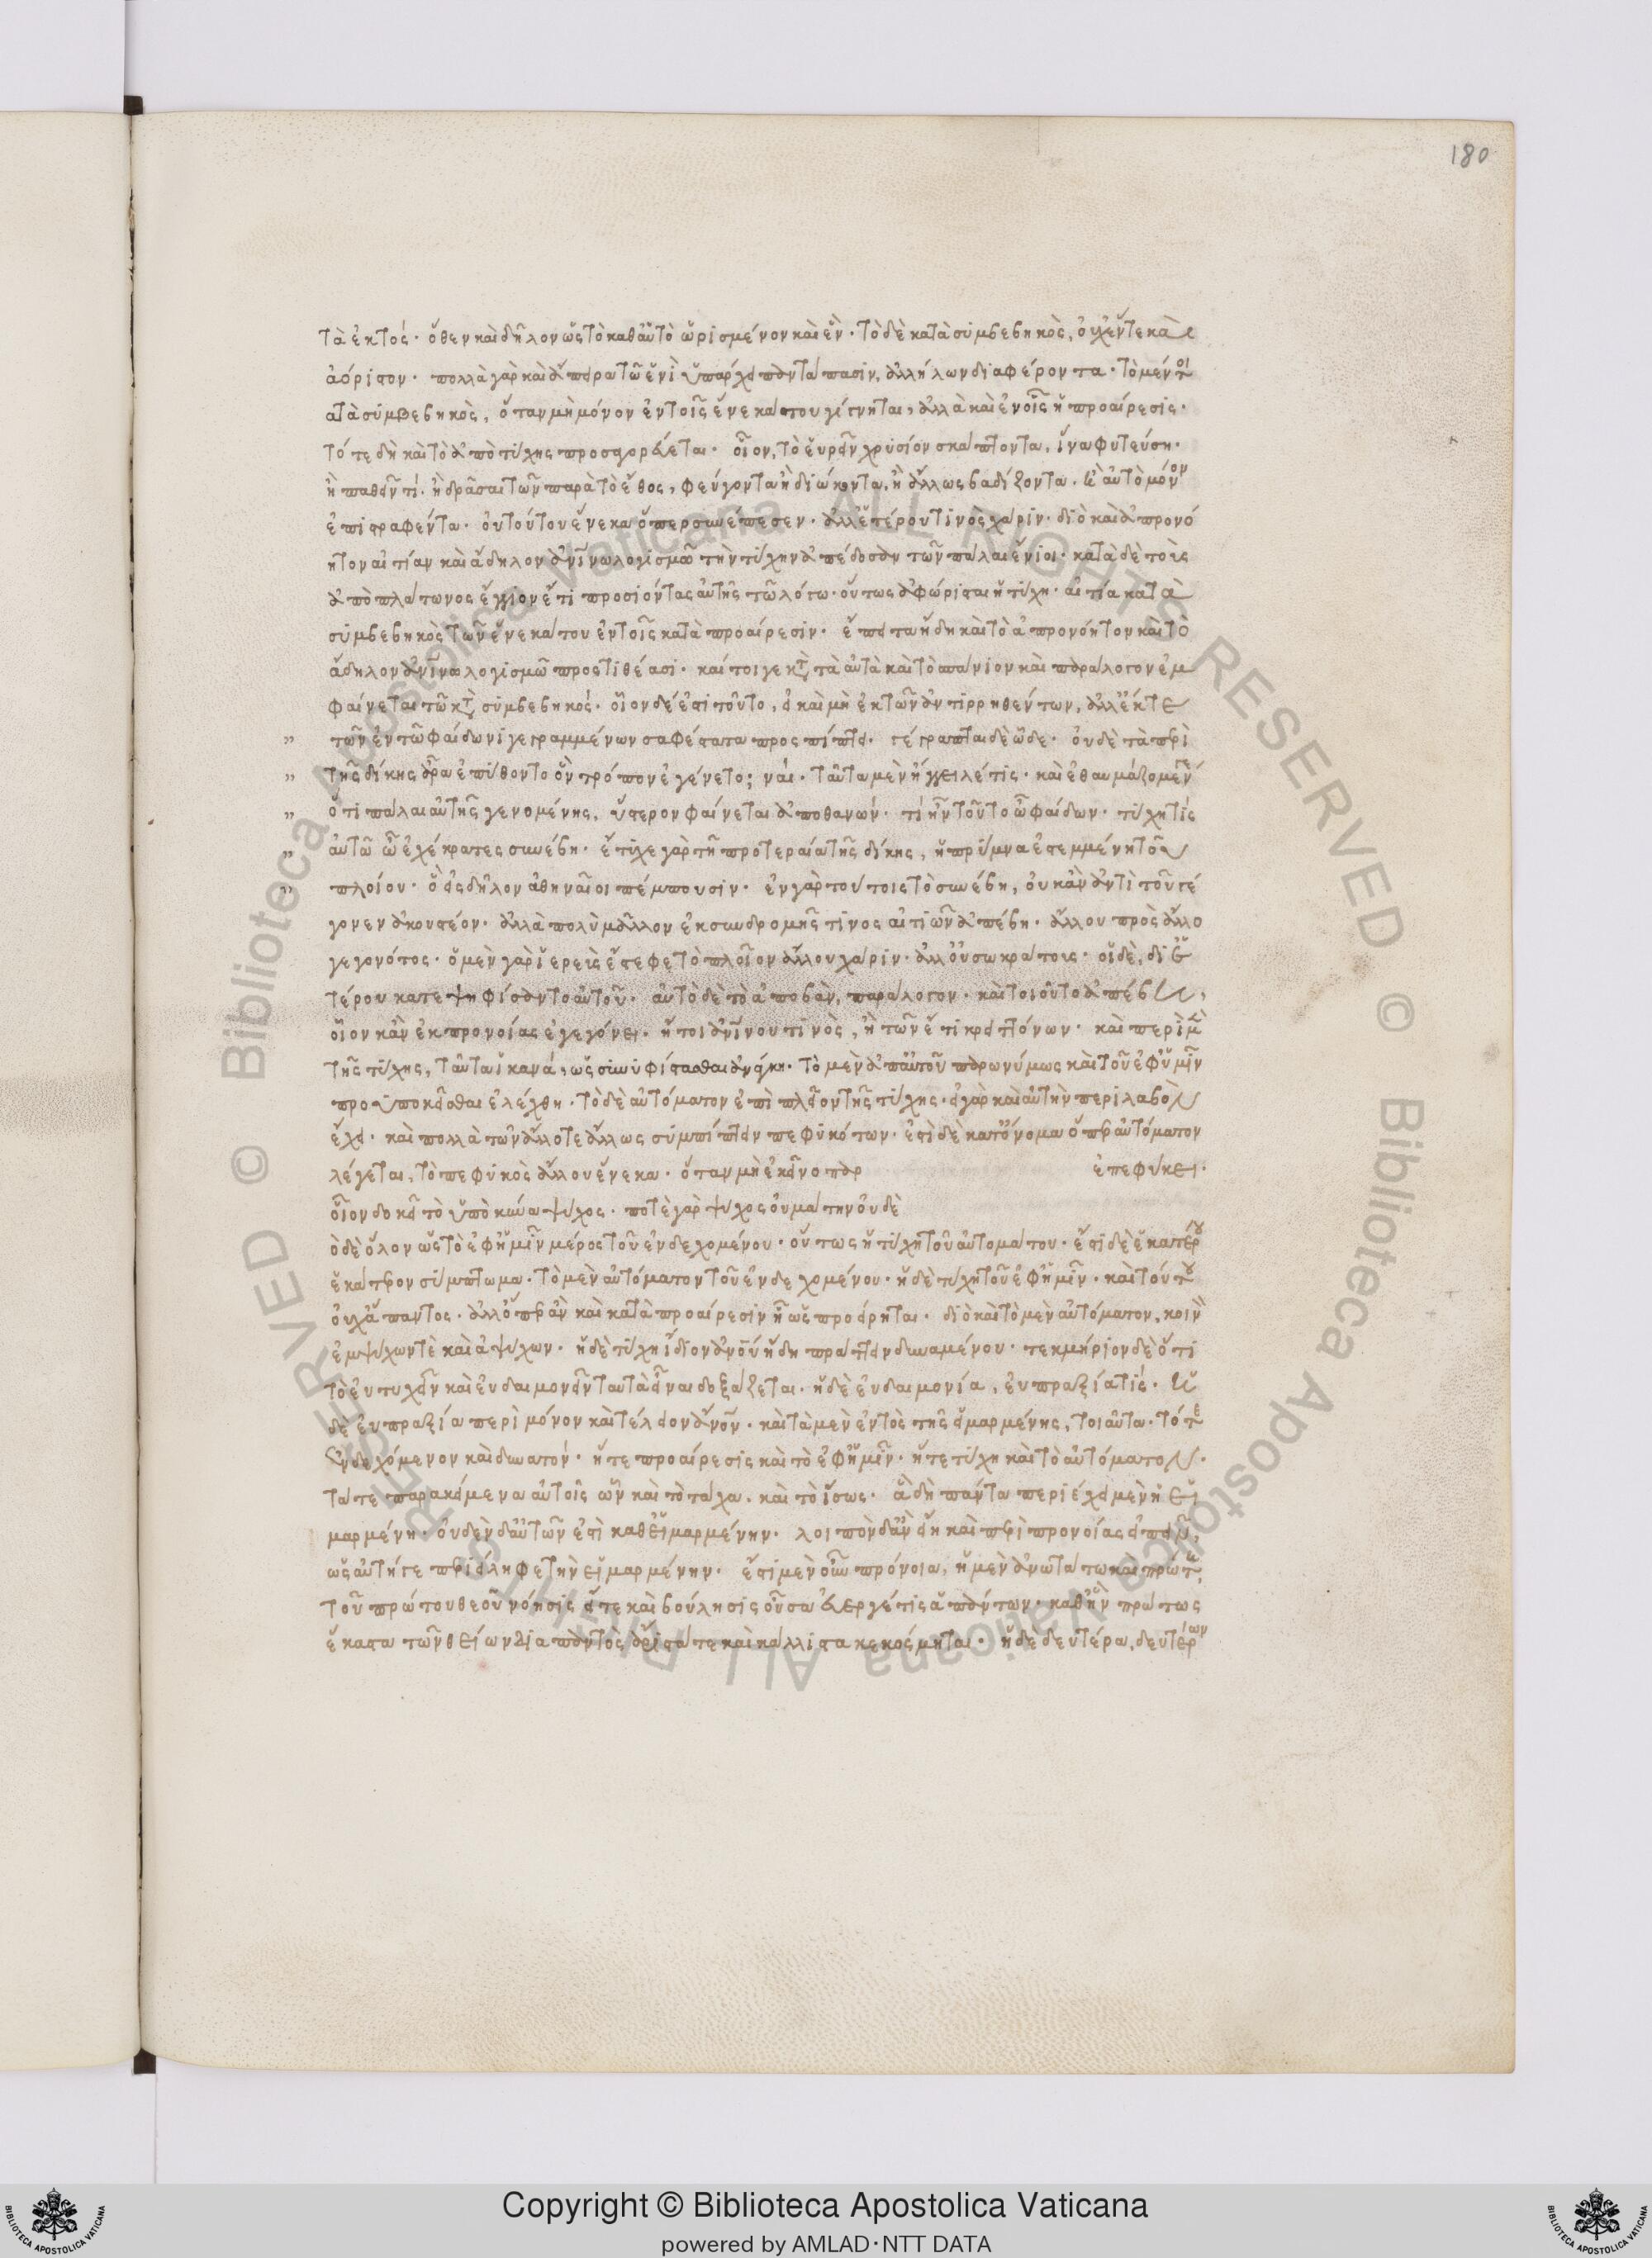 180
τὰ ἐκτός· ὅθεν καὶ δῆλον ὡς τὸ καθαὑτὸ ὡρισμένον καὶ ἕν· τὸ δὲ κατὰ συμβεβηκὸς, οὐχ ἕν τε καὶ
ἀόριστον· πολλὰ γὰρ καὶ ἄπειρα τῷ ἑνὶ ὑπάρχει παντάπασιν, ἀλλήλων διαφέροντα· τὸ μέντοι
ατὰ συμβεβηκὸς, ὅταν μὴ μόνον ἐν τοῖς ἕνεκά του γίγνηται, ἀλλὰ καὶ ἐν οἷς ἡ προαίρεσις·
τότε δὴ καὶ τὸ ἀπὸ τύχης προσαγορεύεται· οἷον, τὸ εὑρεῖν χρυσίον σκάπτοντα, ἵνα φυτεύσῃ·
ἢ παθεῖν τί· ἢ δρᾶσαι τῶν παρὰ τὸ ἔθος, φεύγοντα ἢ διώκοντα, ἢ ἄλλως βαδίζοντα. ἢ αὐτὸ μόνον
ἐπιστραφέντα· οὐ τούτου ἕνεκα ὅπερ συνέπεσεν· ἀλλ' ἑτέρου τινὸς χάριν· διὸ καὶ ἀπρονό
ητον αἰτίαν καὶ ἄδηλον ἀνθρωπίνῳ λογισμῷ τὴν τύχην ἀπέδοσαν τῶν παλαι ἔνιοι· κατὰ δὲ τοὺς
ἀπὸ πλάτωνος ἔγγιον ἔτι προσιόντας αὐτῆς τῷ λόγῳ· οὕτως ἀφώρισται ἡ τύχη· αἰτία κατὰ
συμβεβηκὸς τῶν ἕνεκά του ἐν τοῖς κατὰ προαίρεσιν· ἔπειτα ἤδη καὶ τὸ ἀπρονόητον καὶ τὸ
ἄδηλον ἀνθρωπίνῳ λογισμῷ προστιθέασι· καίτοι γε κατὰ τὰ αὐτὰ καὶ τὸ σπάνιον καὶ παράλογον ἐμ
φαίνεται τῷ κατὰ συμβεβηκός· οἷον δέ ἐστι τοῦτο, εἰ καὶ μὴ ἐκ τῶν ἀντιρρηθέντων, ἀλλ' ἔκ γε
τῶν ἐν τῷ φαίδωνι γεγραμμένων σαφέστατα προσπίπτει· γέγραπται δὲ ὧδε· οὐδὲ τὰ περὶ
τῆς δίκης ἄρα ἐπύθοντο ὃν τρόπον ἐγένετο; ναί· ταῦτα μὲν ἤγγειλέ τις· καὶ ἐθαυμάζομέν
ὅτι πάλαι αὐτῆς γενομένης, ὕστερον φαίνεται ἀποθανών· τί ἦν τοῦτο ὦ φαίδων· τύχη τίς
αὐτῷ ὦ ἐχέκρατες συνέβη· ἔτυχε γὰρ τῇ προτεραίᾳ τῆς δίκης, ἡ πρύμνα ἐστεμμένη τοῦ
πλοίου· ὃ εἰς δῆλον ἀθηναῖοι πέμπουσιν· ἐν γὰρ τούτοις τὸ συνέβη, οὐκ ἂν ἀντὶ τοῦ γέ
γονεν ἀκουστέον· ἀλλὰ πολὺ μᾶλλον ἐκ συνδρομῆς τινος αἰτιῶν ἀπέβη· ἄλλου πρὸς ἄλλο
γεγονότος· ὁ μὲν γὰρ ἱερεὺς ἔστεφε τὸ πλοῖον ἄλλου χάριν· ἀλλ' οὐ σωκράτους· οἱ δὲ, δι' ἕ
τέρον κατεψηφίσαντο αὐτοῦ· αὐτὸ δὲ τὸ ἀποβὰν, παράλογον· καὶ τοιοῦτο ἀπέβη,
οἷον κἂν ἐκ προνοίας ἐγεγόνει· ἤτοι ἀνθρωπίνου τινὸς, ἢ τῶν ἔτι κρειττόνων· καὶ περὶ μὲν
τῆς τύχης, ταῦτα ἱκανά, ὡς συνυφίστασθαι ἀνάγκη· τὸ μὲν ἀπ' αὐτοῦ παρωνύμως καὶ τοῦ ἐφ' ἡμῖν
προϋποκεῖσθαι ἐλέχθη· τὸ δὲ αὐτόματον ἐπὶ πλεῖον τῆς τύχης· εἰ γὰρ καὶ αὐτὴν περιλαβὸν
ἔχει· καὶ πολλὰ τῶν ἄλλοτε ἄλλως συμπίπτειν πεφυκότων· ἔστι δὲ κατ' ὄνομα ὅπερ αὐτόματον
λέγεται, τὸ πεφυκὸς ἄλλου ἕνεκα· ὅταν μὴ ἐκεῖνο παρ ἐπεφύκει·
οἷον δοκεῖ τὸ ὑπὸ κύνα ψύχος· ποτὲ γὰρ ψύχος οὐ μάτην οὐδὲ
ὁ δὲ ὅλον ὡς τὸ ἐφ' ἡμῖν μέρος τοῦ ἐνδεχομένου· οὕτως ἡ τύχη τοῦ αὐτομάτου· ἔστι δὲ ἑκατέρου
ἑκάτερον σύμπτωμα· τὸ μὲν αὐτόματον τοῦ ἐνδεχομένου· ἡ δὲ τύχη τοῦ ἐφ' ἡμῖν· καὶ τούτου
οὐχ ἅπαντος· ἀλλ' ὅπερ ἂν καὶ κατὰ προαίρεσιν ᾖ ὡς προείρηται· διὸ καὶ τὸ μὲν αὐτόματον, κοινὸν
ἐμψύχων τὲ καὶ ἀψύχων· ἡ δὲ τύχη ἴδιον ἀνθρώπου ἤδη πράττειν δυναμένου· τεκμήριον δὲ ὅτι
τὸ εὐτυχεῖν καὶ εὐδαιμονεῖν ταὐτὰ εἶναι δοξάζεται· ἡ δὲ εὐδαιμονία, εὐπραξία τίς· ἡ
δὲ εὐπραξία περὶ μόνον καὶ τέλειον ἄνθρωπον· καὶ τὰ μὲν ἐντὸς τῆς εἱμαρμένης, τοιαῦτα· τό τε
ἐνδεχόμενον καὶ δυνατόν· ἥ τε προαίρεσις καὶ τὸ ἐφ' ἡμῖν· ἥ τε τύχη καὶ τὸ αὐτόματον·
τά τε παρακείμενα αὐτοῖς ὧν καὶ τὸ τάχα. καὶ τὸ ἴσως· ἃ δὴ πάντα περιέχει μὲν ἡ εἱ
μαρμένη· οὐδὲν δ' αὐτῶν ἐστὶ καθ' εἱμαρμένην· λοιπὸν δ' ἂν εἴη καὶ περὶ προνοίας εἰπεῖν,
ὡς αὐτή γε περιείληφε τὴν εἱμαρμένην· ἔστι μὲν οὖν πρόνοια, ἡ μὲν ἀνωτάτω καὶ πρώτη,
τοῦ πρώτου θεοῦ νόησις εἴτε καὶ βούλησις οὖσα εὐεργέτις ἁπάντων· καθ' ἣν πρώτως
ἕκαστα τῶν θείων διὰ παντὸς ἄριστά τε καὶ κάλλιστα κεκόσμηται· ἡ δὲ δευτέρα, δευτέρων
Copyright © Biblioteca Apostolica Vaticana
powered by AMLAD·NTT DATA